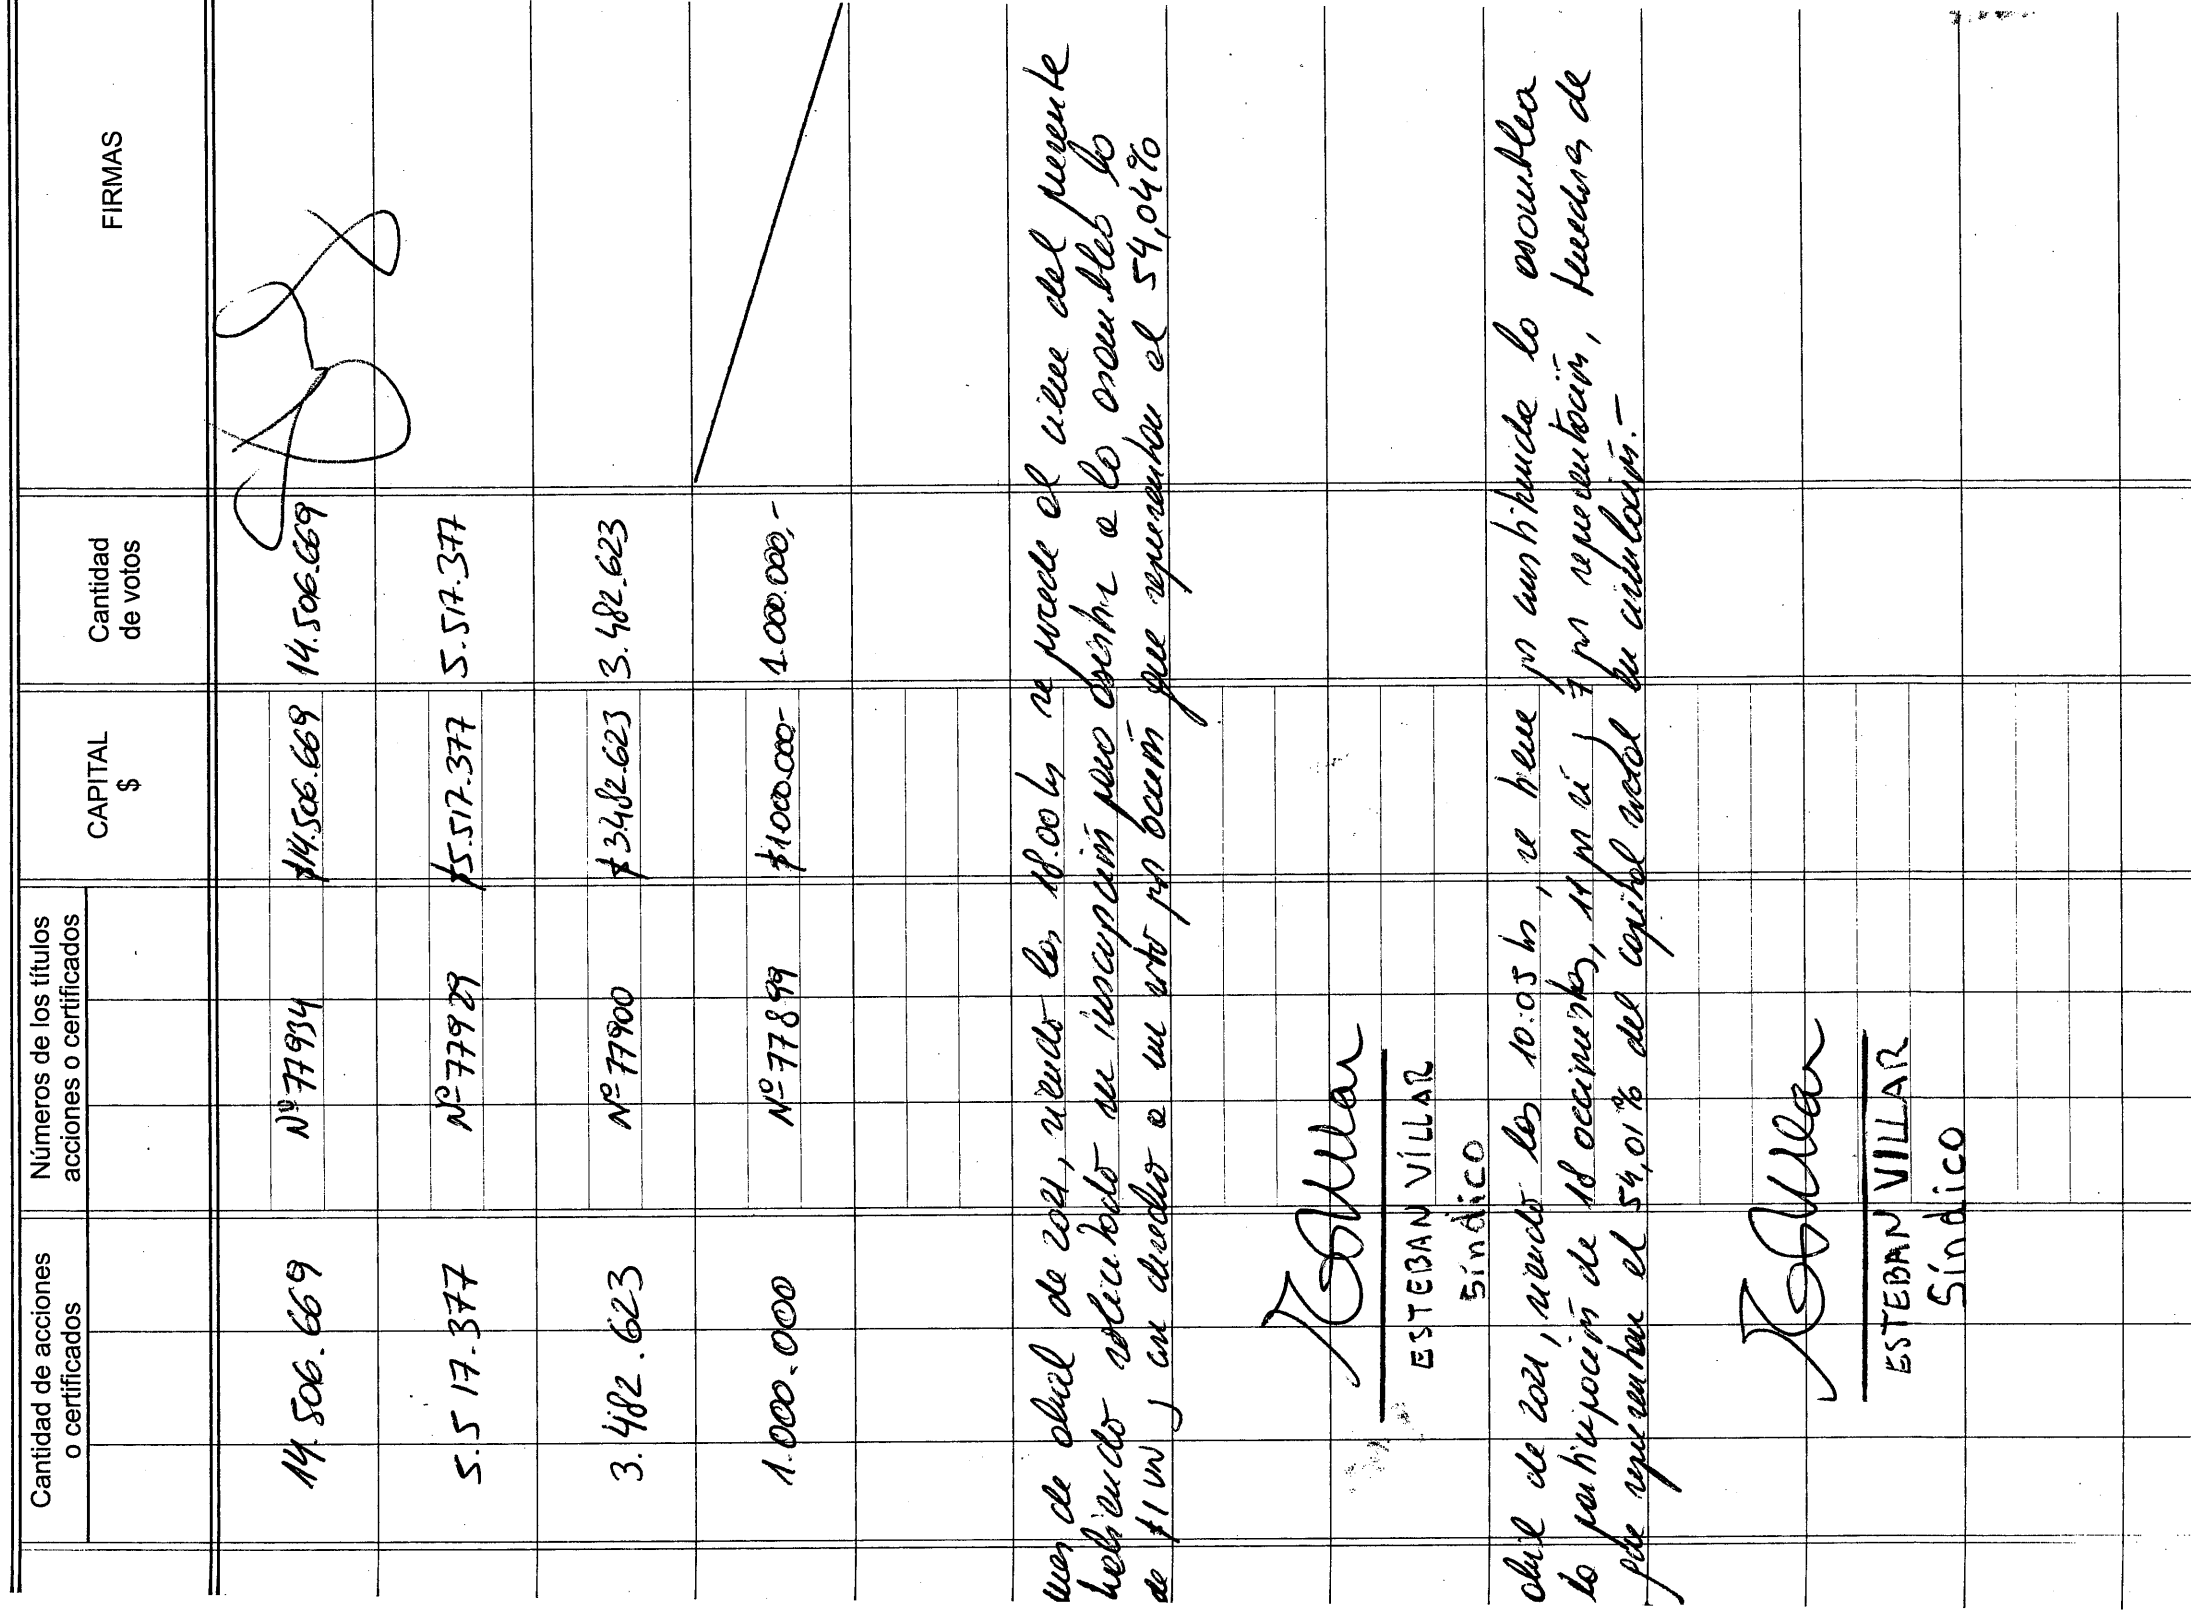 Cantidad de acciones o certificados
Números de los títulos acciones o certificados
CAPITAL $
Cantidad de votos
FIRMAS
14.506.669 Nº 77934 $14.506.669 14.506.669
5.517.377 Nº 77929 $5.517.377 5.517.377
3.482.623 Nº 77900 $3.482.623 3.482.623
1.000.000 Nº 77899 $1.000.000- 1.000.000,-
mes de abril de 2021, siendo las 18.00 hs se procede al cierre del presente
habiendo solicitado su inscripción para asistir a la asamblea lo
de $1 VN y con derecho a un voto por acción que representan el 54,04%
ESTEBAN VILLAR
Síndico
abril de 2021, siendo las 10:05 hs, se tiene por constituida la asamblea
la participación de 18 accionistas, 11 por sí y 7 por representación, tenedores de
que representan el 54,01% del capital social en circulación.-
ESTEBAN VILLAR
Síndico